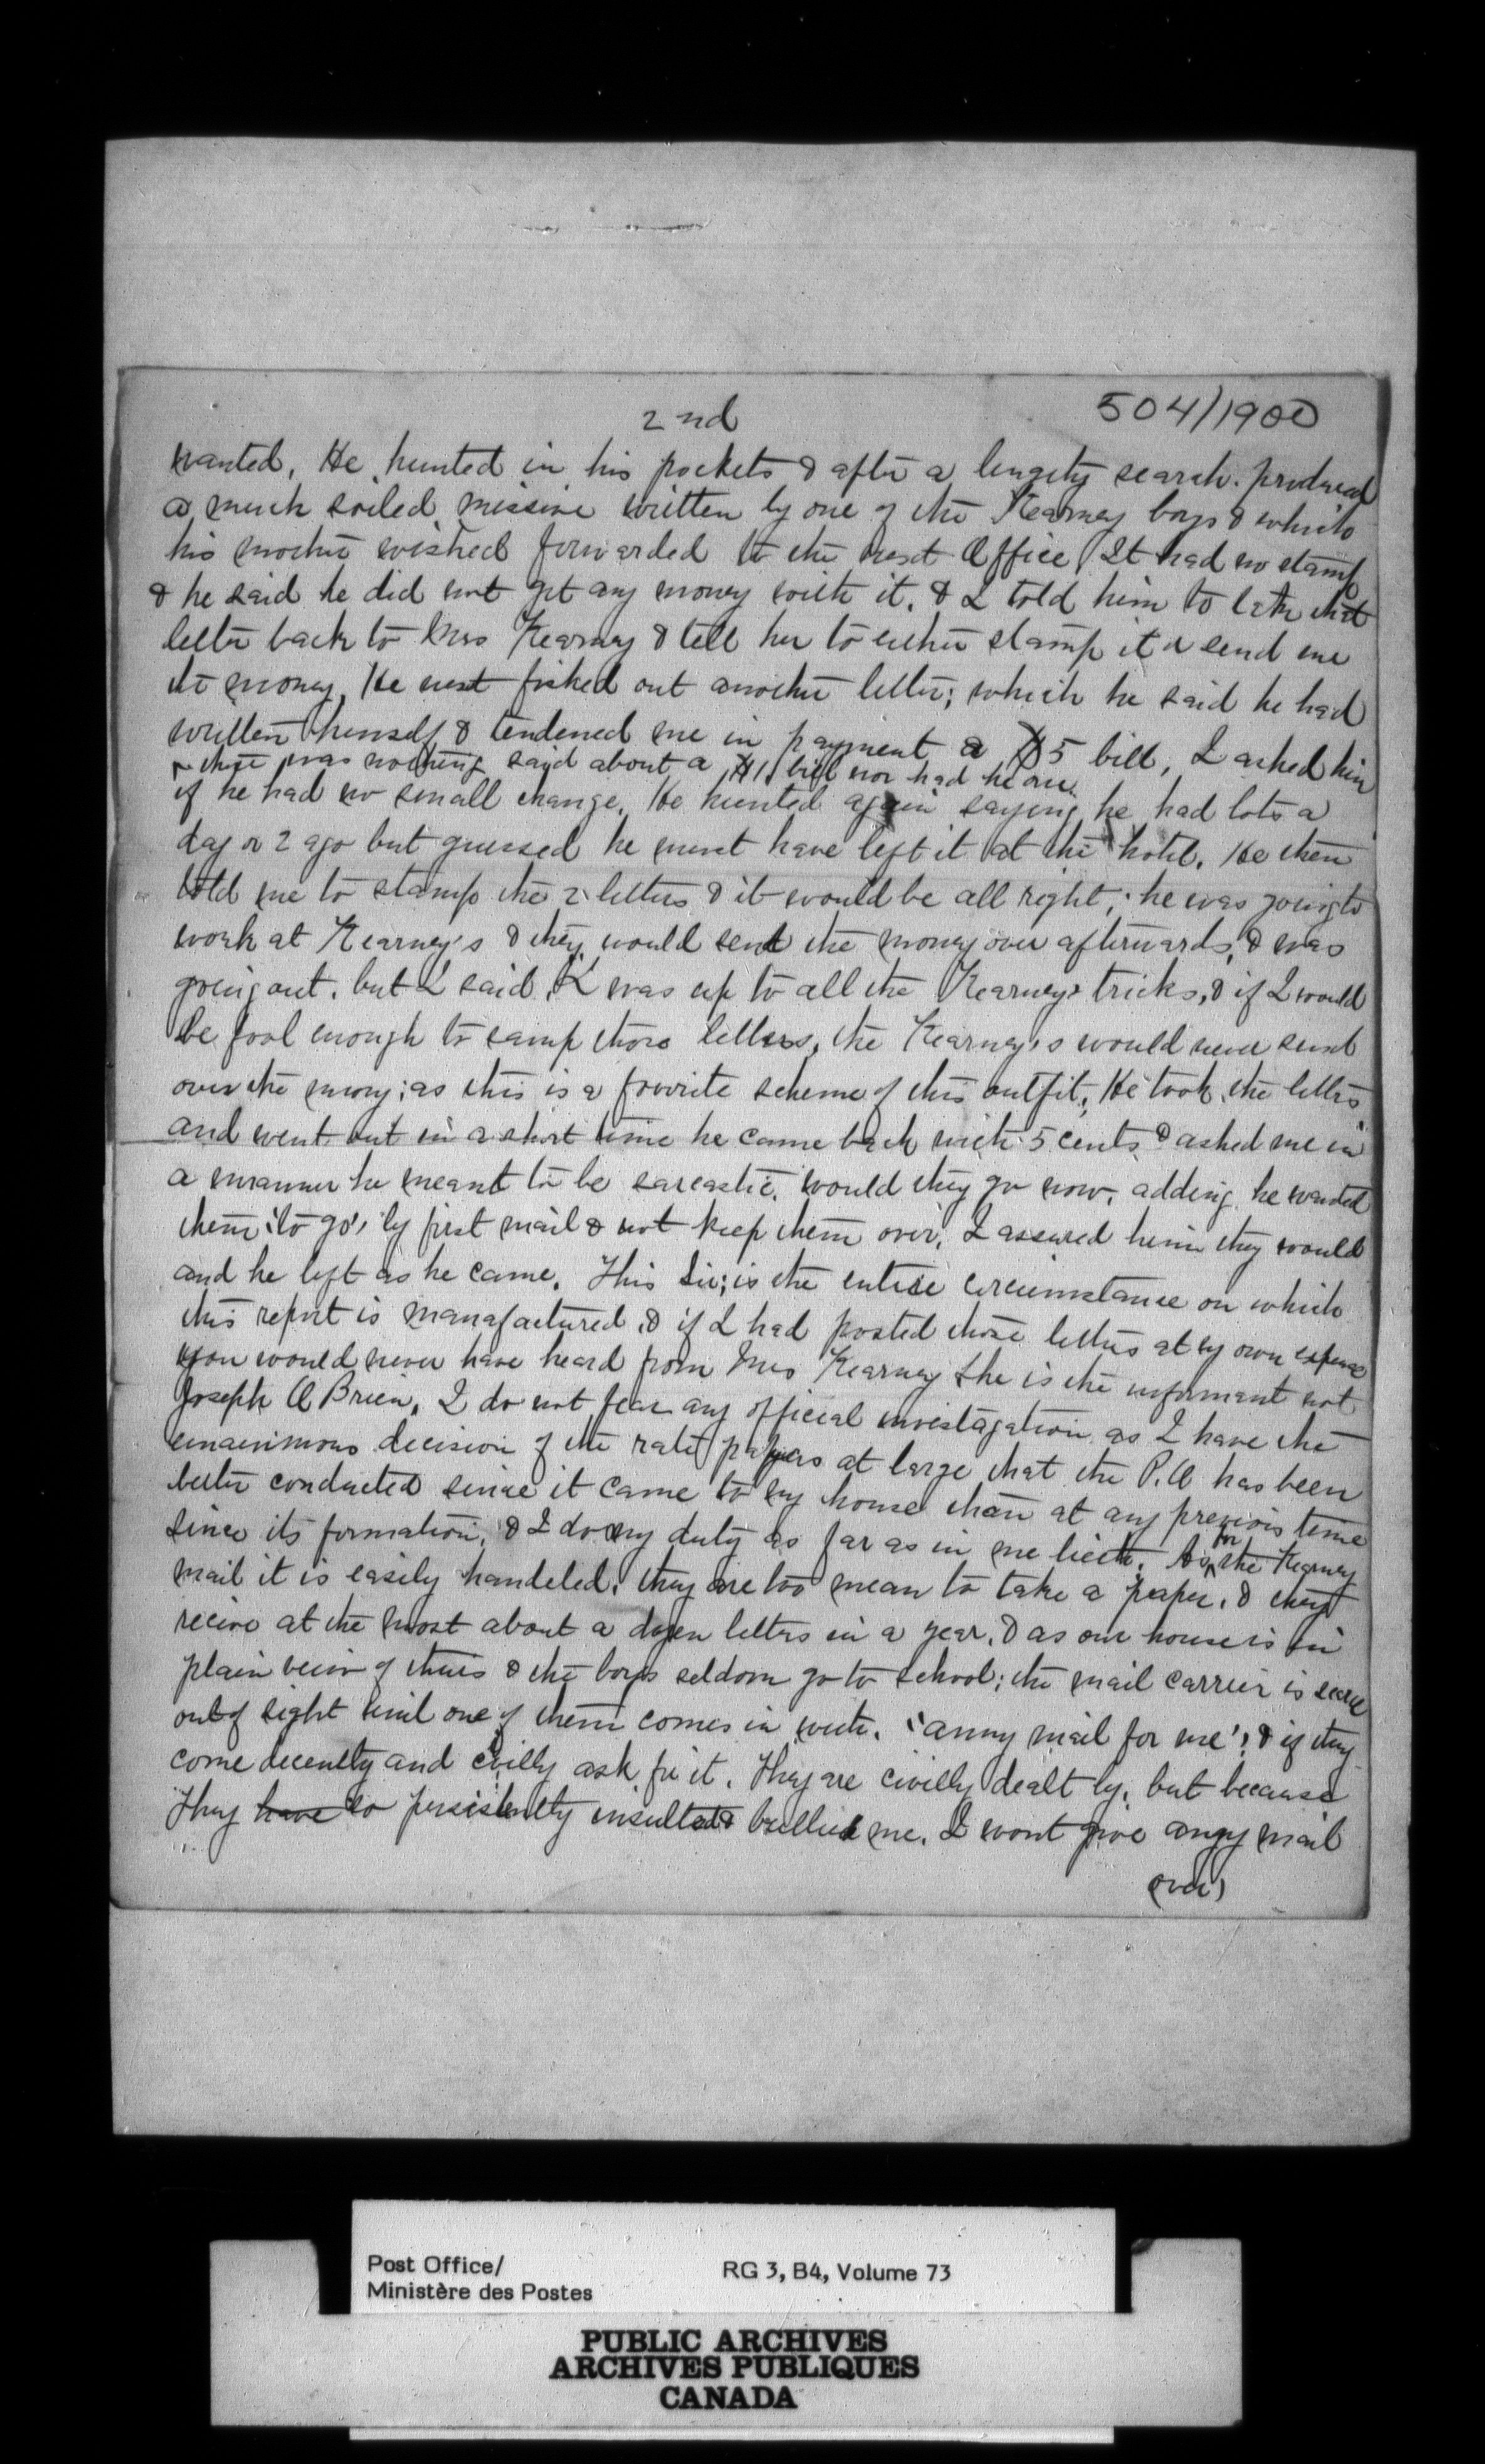 2nd
504/1900
wanted, He hunted in his pockets & after a lengety search. produced
a much soiled missive written by one of the Kearney boys & which
his mother wished forwarded to the next Office. It had no stamp
& he said he did not get any money with it. & I told him to take that
letter back to Mrs Kearney & tell her to either stamp it or send me
the money, He next fished out another letter; which he said he had
written himself & tendened me in payment a $5 bill, I asked him
there was nothing said about a $1 bill nor had he one.
if he had no small change. He hunted again saying he had lots a
day or 2 ago but guessed he must have left it at the hotel. He then
told me to stamp the 2 letters & it would be all right; he was going to
work at Kearney's & they would send the money over afterwards, & was
going out. but I said, I was up to all the Kearney's tricks, & if I would
be fool enough to samp those letters, the Kearney's would never send
over the money; as this is a favorite scheme of this outfit, He took the letters
and went out in a short time he came back with 5 cents & asked me in
a manner he meant to be sarcastic. would they go now. adding he wanted
them 'to go', by first mail & not keep them over, I assured him they would
and he left as he came. This Sir; is the entire circumstance on which
this report is manafactured, & if I had posted those letters at my own expense
you would never have heard from Mrs Kearney She is the informant not
Joseph O Brien, I do not fear any official investagation as I have the
unanimous decision of the rate payers at large that the P.O has been
better conducted since it came to my house than at any previois time
since its formation, & I do my duty as far as in me lieth. As for the Kearney
mail it is easily handeled, they are too mean to take a paper, & they
recive at the most about a dozen letters in a year, & as our house is in
plain veiw of theirs & the boys seldom go to school; the mail carrier is scarce
out of sight until one of them comes in with. 'anny mail for me'! & if they
come decently and civilly ask for it. They are civilly dealt by, but because
They have so persistently insulted & bullied me. I wont give anyy mail
(over)
Post Office/
Ministère des Postes
RG 3, B4, Volume 73
PUBLIC ARCHIVES
ARCHIVES PUBLIQUES
CANADA